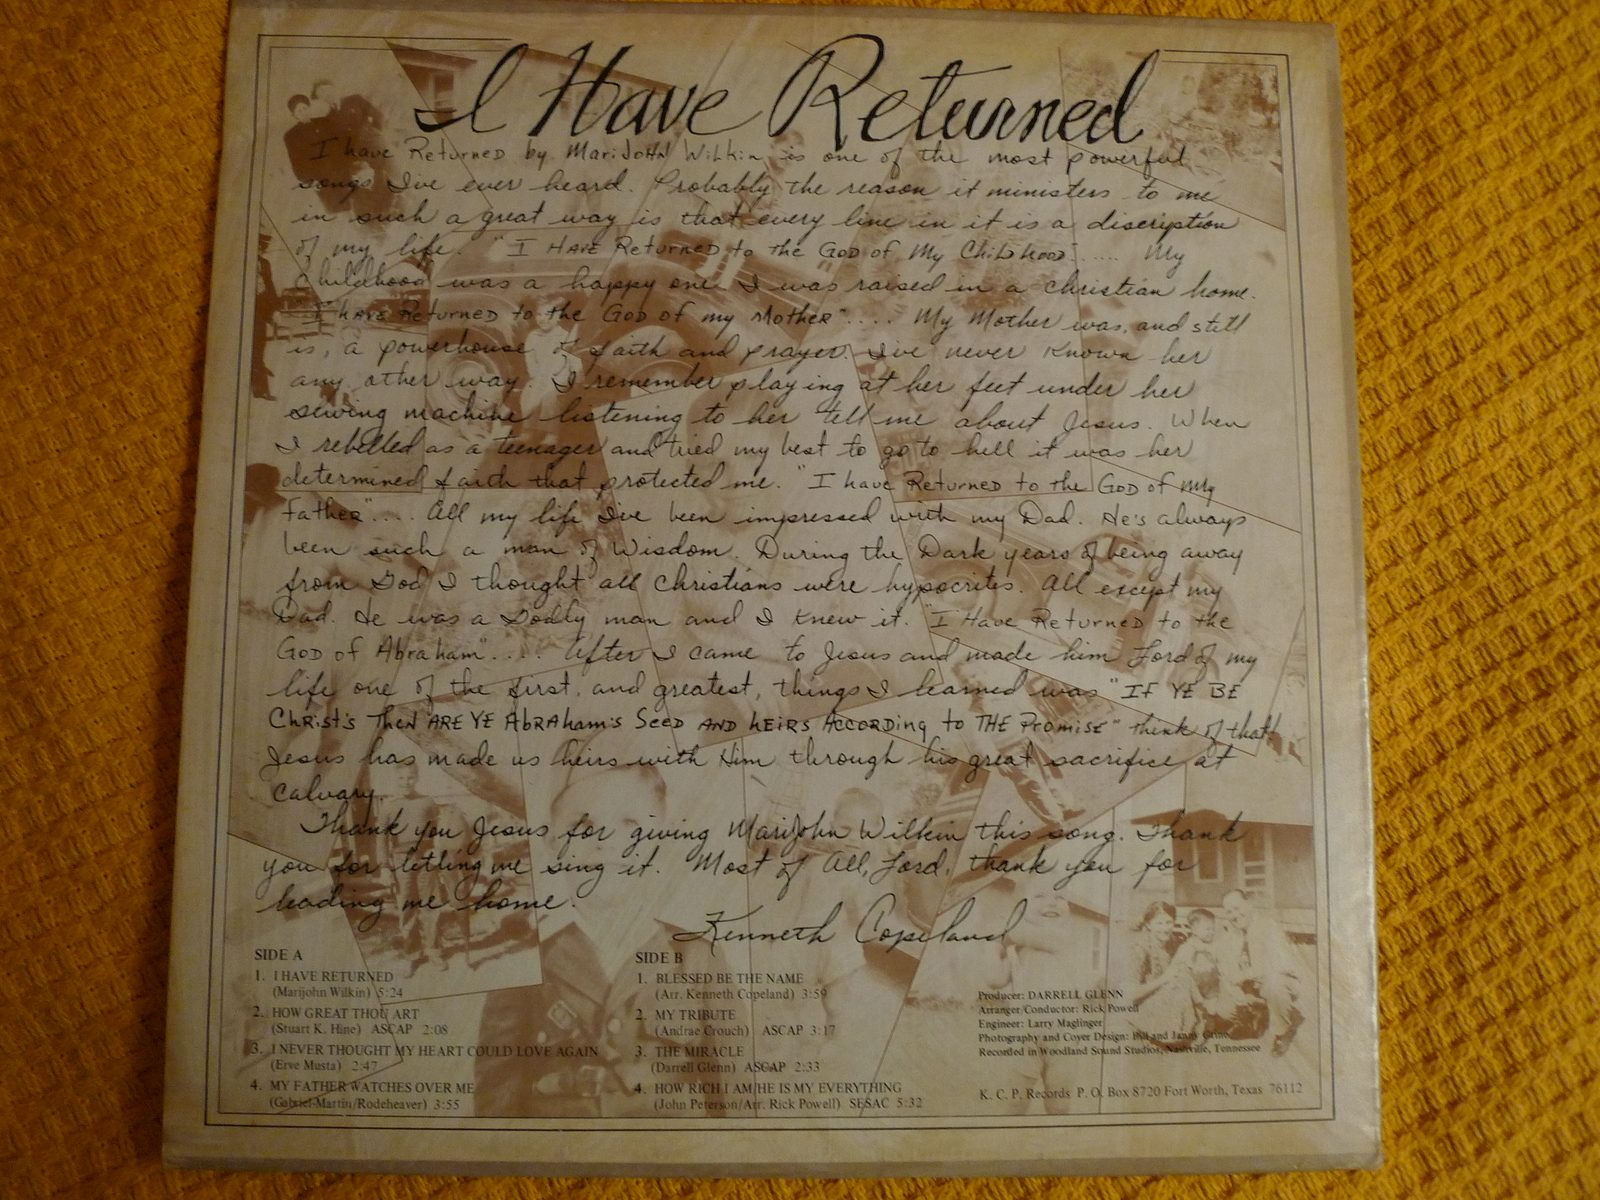 I Have Returned
I have Returned by MariJoHN Wilkin is one of the most powerful
songs I've ever heard. Probably the reason it ministers to me
in such a great way is that every line in it is a discription
of my life. "I HAVE Returned to the GOD of My ChilDHooD"...... My
Childhood was a happy one. I was raised in a christian home.
"I HAVE Returned to the GOD of my Mother".... My Mother was, and still
is, a powerhouse of faith and prayer. I've never known her
any other way. I remember playing at her feet under her
sewing machine listening to her tell me about Jesus. When
I rebelled as a teenager and tried my best to go to hell it was her
determined faith that protected me. "I have Returned to the GOD of My
Father".... All my life I've been impressed with my Dad. He's always
been such a man of Wisdom. During the Dark years of being away
from God I thought all Christians were hypocrites. All except my
Dad. He was a Godly man and I knew it. "I Have Returned to the
GOD of Abraham".... After I came to Jesus and made him Lord of my
life one of the first, and greatest, things I learned was "IF YE BE
Christ's Then ARE YE AbRAham's Seed AND heirs According to THE Promise" think of that
Jesus has made us heirs with Him through his great sacrifice at
Calvary.
Thank you Jesus for giving Marijohn Wilkin this song. Thank
you for letting me sing it. Most of All, Lord, thank you for
leading me home.
Kenneth Copeland
SIDE A
1. I HAVE RETURNED
(Marijohn Wilkin) 5:24
2. HOW GREAT THOU ART
(Stuart K. Hine) ASCAP 2:08
3. I NEVER THOUGHT MY HEART COULD LOVE AGAIN
(Erve Musta) 2:47
4. MY FATHER WATCHES OVER ME
(Gabriel-Martin/Rodeheaver) 3:55
SIDE B
1. BLESSED BE THE NAME
(Arr. Kenneth Copeland) 3:59
2. MY TRIBUTE
(Andrae Crouch) ASCAP 3:17
3. THE MIRACLE
(Darrell Glenn) ASCAP 2:33
4. HOW RICH I AM/HE IS MY EVERYTHING
(John Peterson/Arr. Rick Powell) SESAC 5:32
Producer: DARRELL GLENN
Arranger/Conductor: Rick Powell
Engineer: Larry Maglinger
Photography and Cover Design: Bill and Janny
Recorded in Woodland Sound Studios, Nashville, Tennessee
K. C. P. Records P. O. Box 8720 Fort Worth, Texas 76112